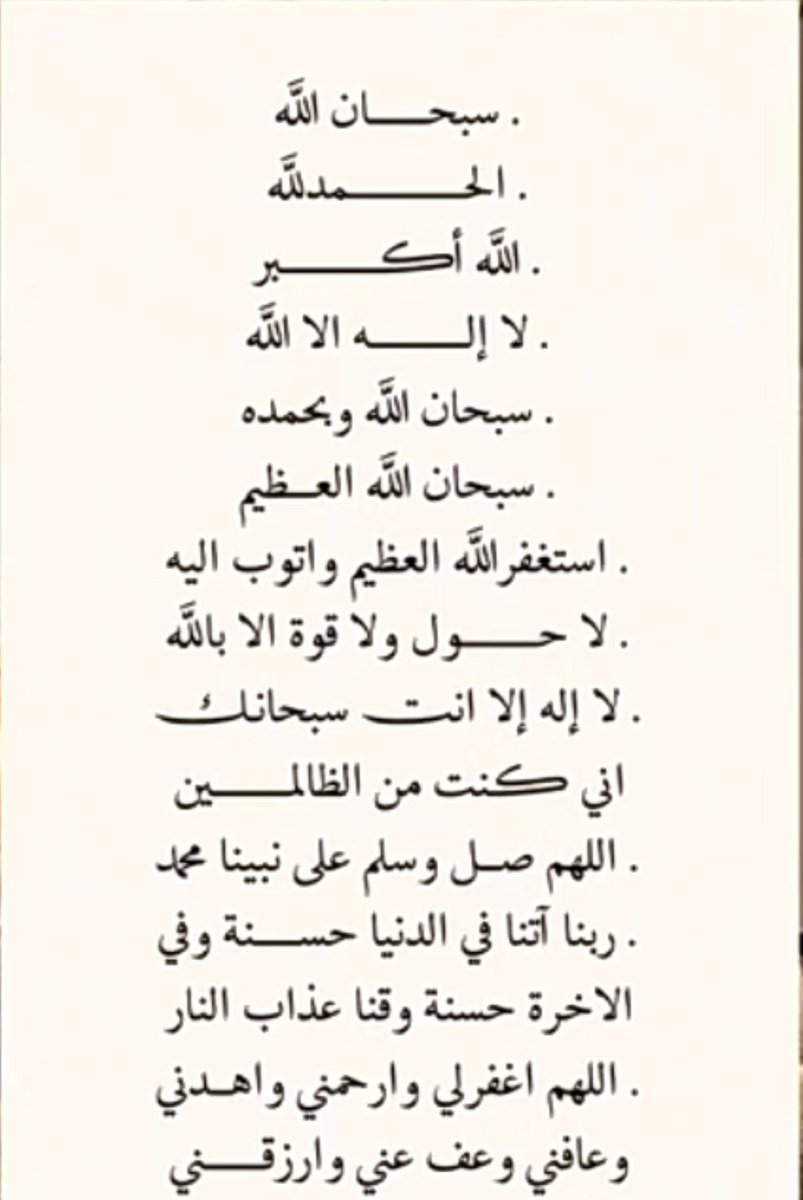 . سبحان اللَّه
. الحمدللَّه
. اللَّه أكبر
. لا إله الا اللَّه
. سبحان اللَّه وبحمده
. سبحان اللَّه العظيم
. استغفراللَّه العظيم واتوب اليه
. لا حول ولا قوة الا باللَّه
. لا إله إلا انت سبحانك
اني كنت من الظالمين
. اللهم صل وسلم على نبينا محمد
. ربنا آتنا في الدنيا حسنة وفي
الاخرة حسنة وقنا عذاب النار
. اللهم اغفرلي وارحمني واهدني
وعافني وعف عني وارزقني